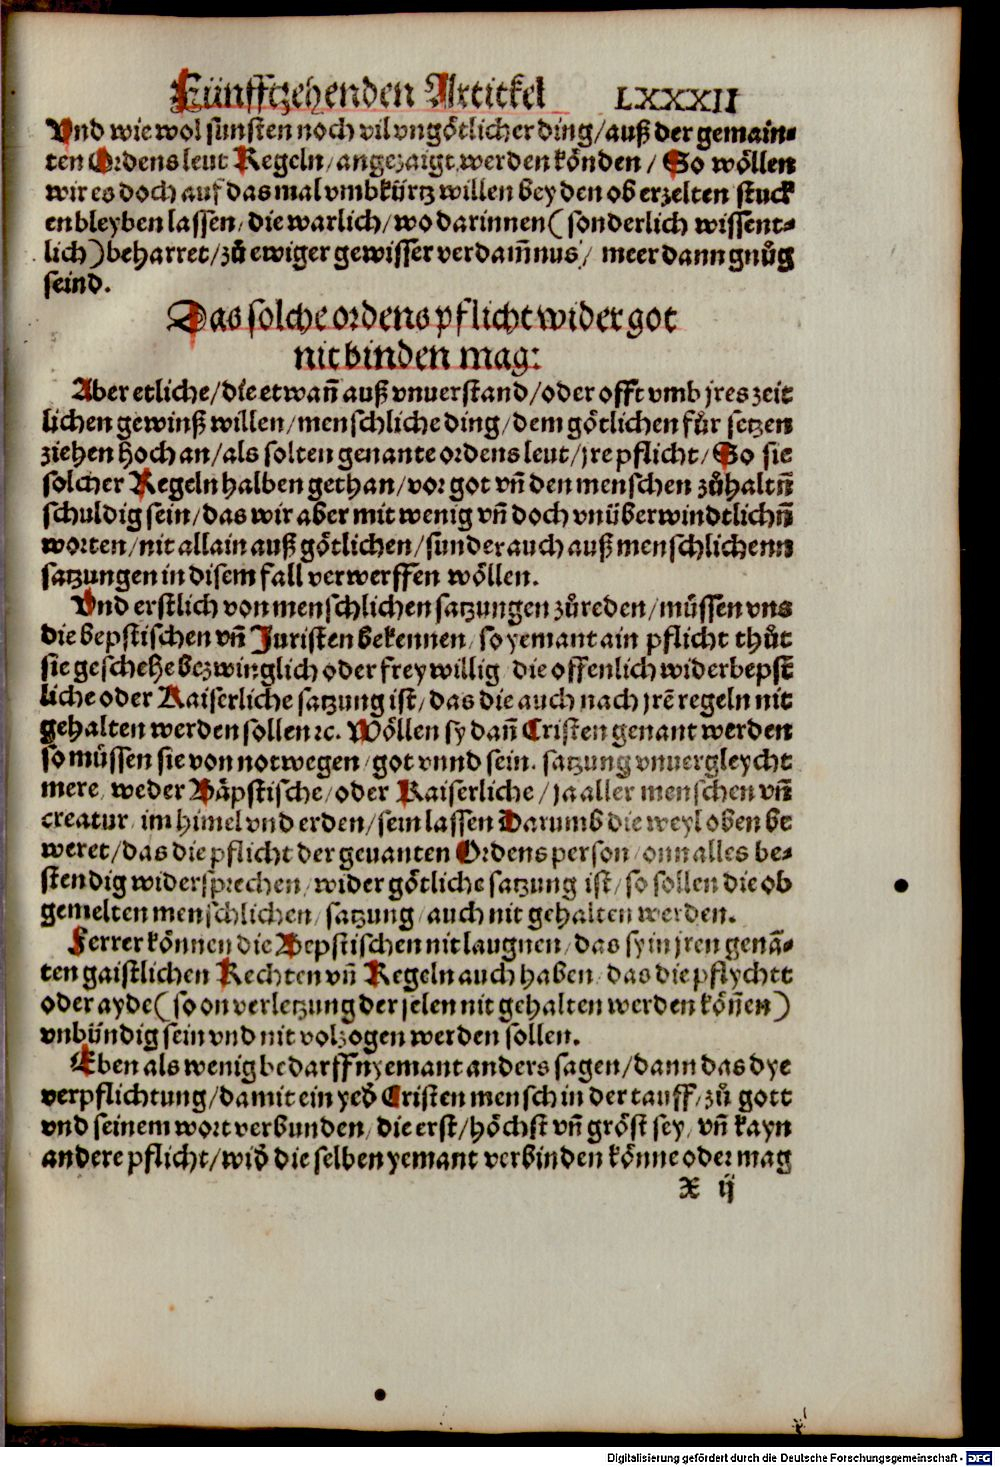 Fünfftzehenden Artickel LXXXII
Vnd wie wol sunsten noch vil vngötlicher ding/auß der gemain-
ten Ordensleut Regeln/angezaigt werden könden/ So wöllen
wir es doch auf das mal vmb kürtz willen bey den ob erzelten stuck
en bleyben lassen/die warlich/wo darinnen(sonderlich wissent-
lich)beharret/zů ewiger gewisser verdam̃nus/ meer dann gnůg
seind.
Das solche ordens pflicht wider got
nit binden mag:
Aber etliche/die etwañ auß vnuerstand/oder offt vmb jres zeit
lichen gewinß willen/menschliche ding/dem götlichen für setzen
ziehen hoch an/als solten genante ordensleut/jre pflicht/So sie
solcher Regeln halben gethan/vor got vñ den menschen zůhaltñ
schuldig sein/das wir aber mit wenig vñ doch vnüberwindtlichñ
worten/nit allain auß götlichen/sunder auch auß menschlichenn
satzungen in disem fall verwerffen wöllen.
Vnd erstlich von menschlichen satzungen zůreden/müssen vns
die bepstischen vñ Juristen bekennen/so yemant ain pflicht thůt
sie geschehe bezwinglich oder freywillig/die offenlich wider bepst
liche oder Kaiserliche satzung ist/das die auch nach jrẽ regeln nit
gehalten werden sollen ꝛc. Wöllen sy dañ Cristen genant werden
so müssen sie von notwegen/got vnnd sein. satzung vnuergleycht
mere/weder Bäpstische/oder Kaiserliche/ja aller menschen vñ
creatur/im himel vnd erden/sein lassen Darumb die weyl oben be
weret/das die pflicht der genanten Ordens person/onn alles be-
stendig widersprechen/wider götliche satzung ist/so sollen die ob
gemelten menschlichen/satzung/auch nit gehalten werden.
Ferrer können die Bepstischen nit laugnen/das sy in jren genã-
ten gaistlichen Rechten vñ Regeln auch haben/das die pflychtt
oder ayde(so on verletzung der selen nit gehalten werden köñen)
vnbündig sein vnd nit volzogen werden sollen.
Eben als wenig bedarff nyemant anders sagen/dann das dye
verpflichtung/damit ein yeď Cristen mensch in der tauff/zů gott
vnd seinem wort verbunden/die erst/höchst vñ gröst sey/vñ kayn
andere pflicht/wiď die selben yemant verbinden könne oder mag
X ij
Digitalisierung gefördert durch die Deutsche Forschungsgemeinschaft - DFG